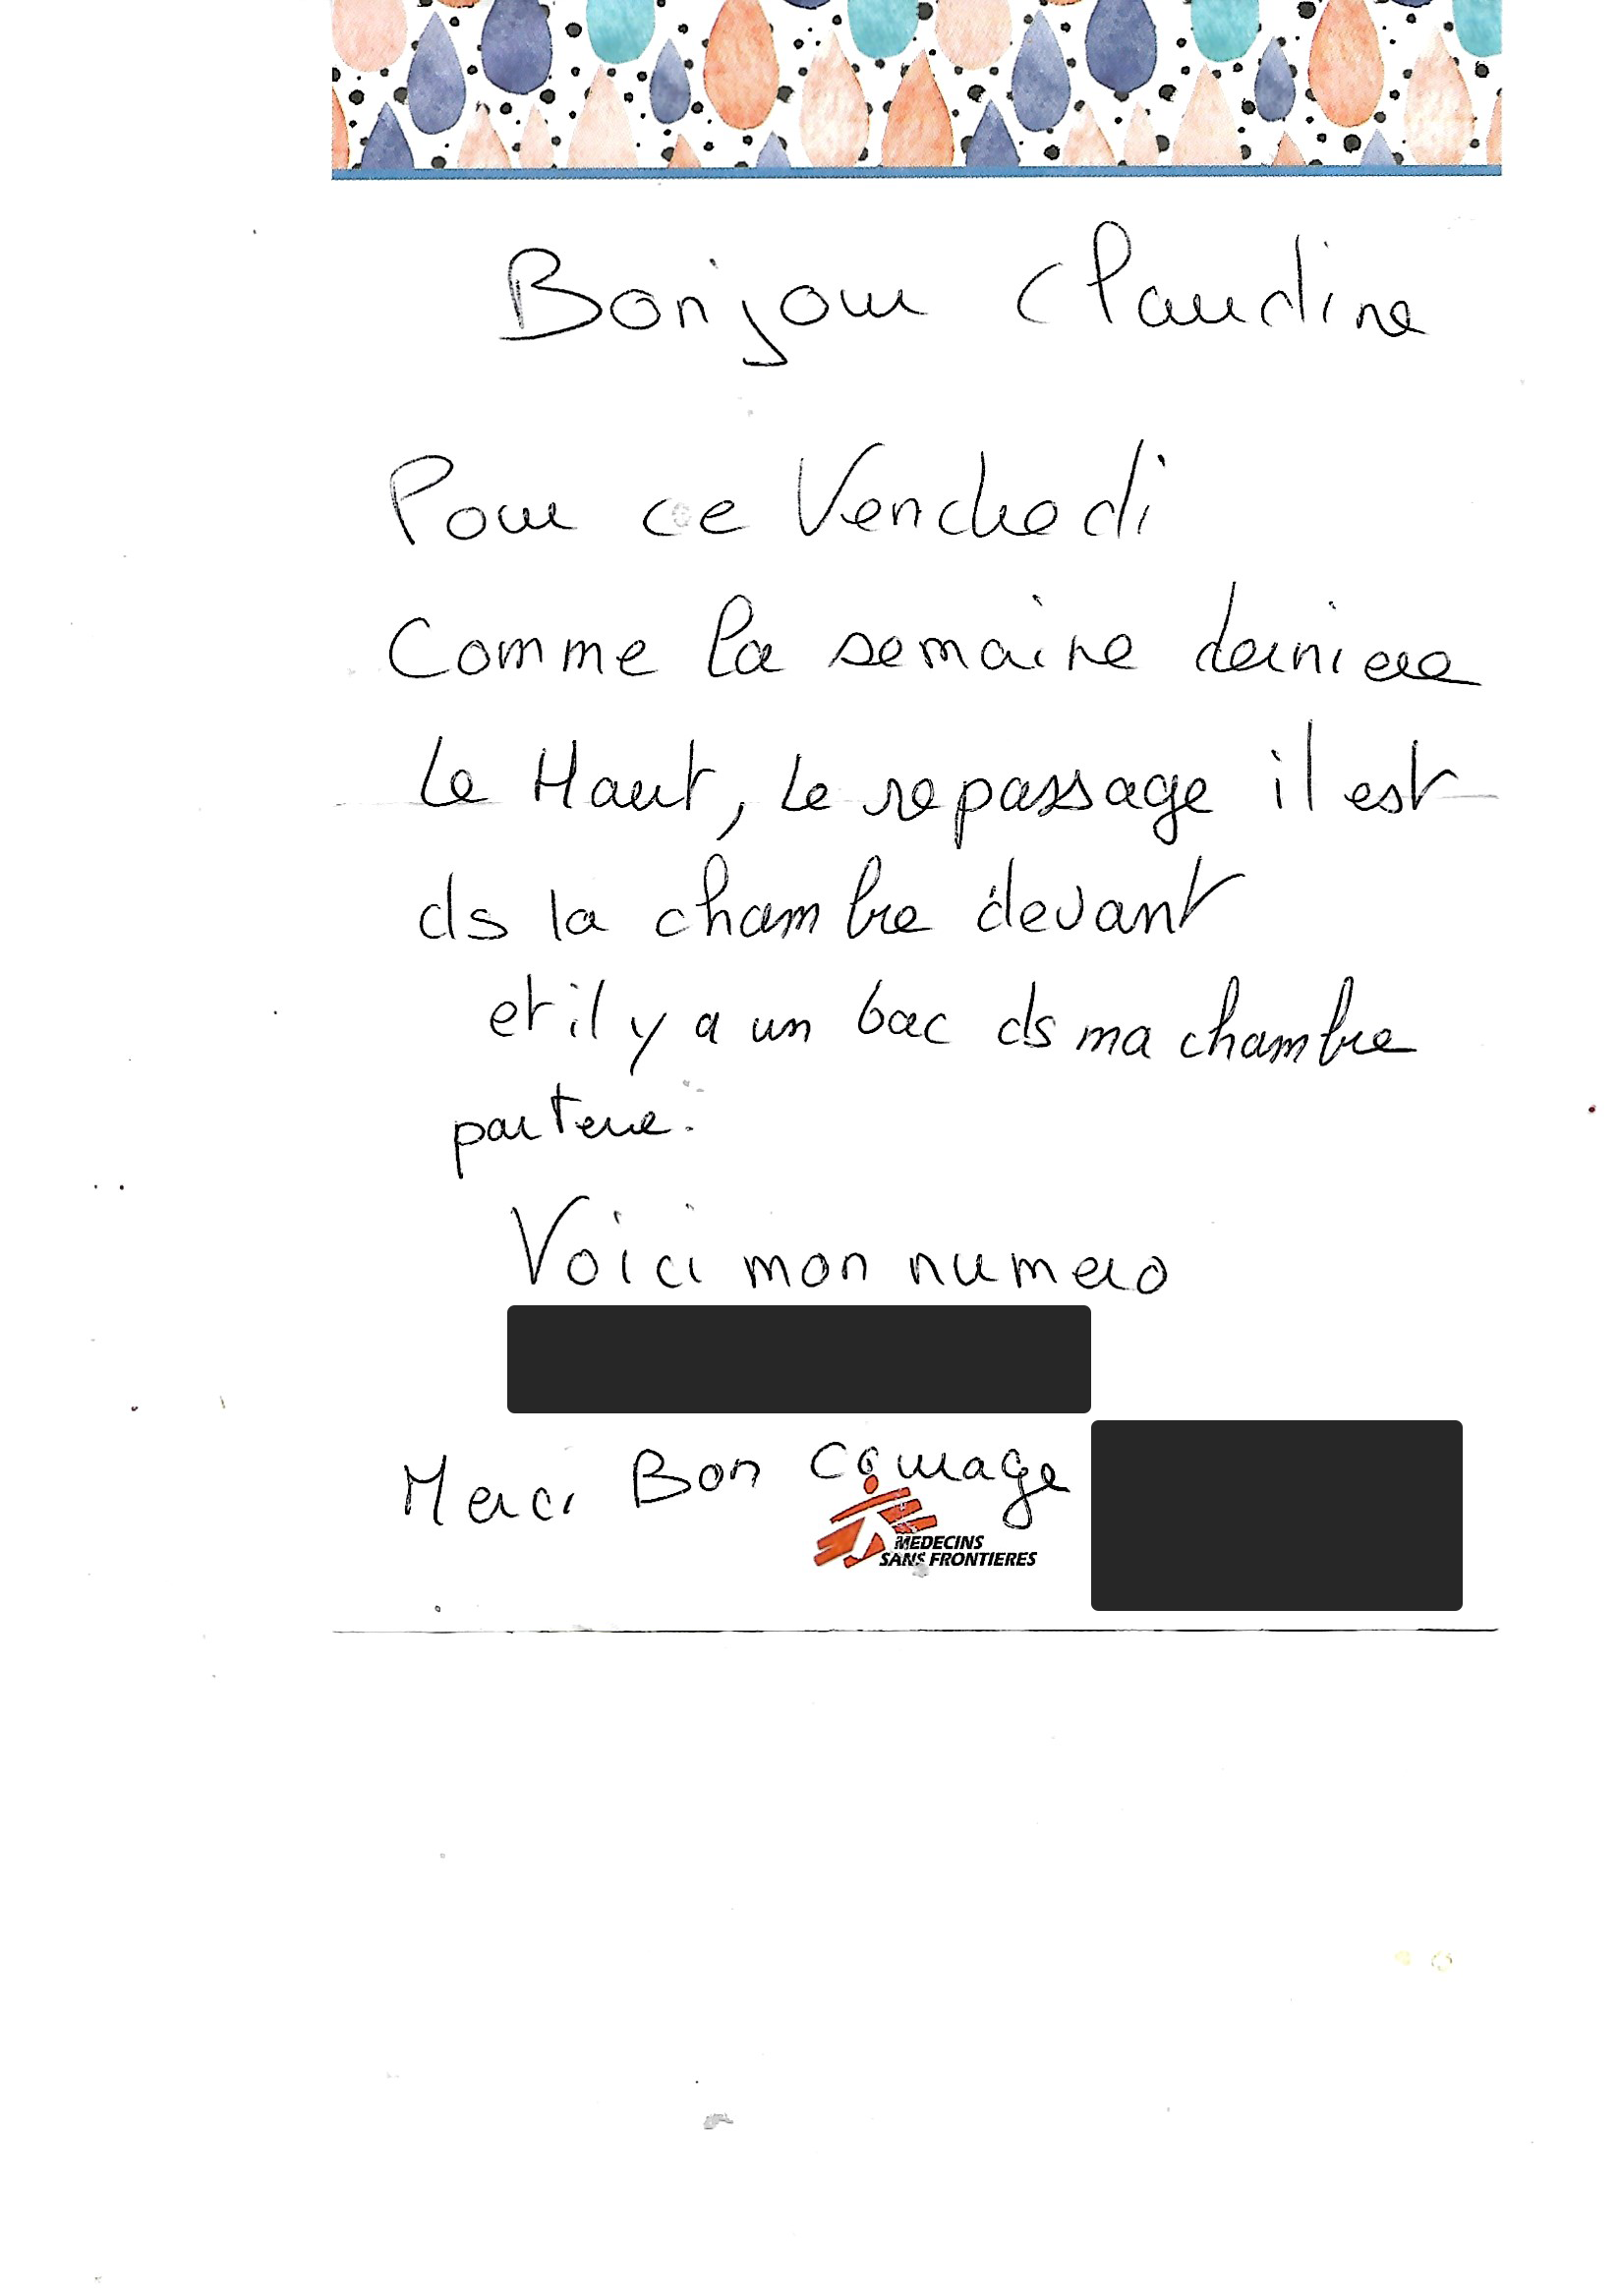 Bonjour Claudine
Pour ce Vendredi
Comme la semaine derniere
le Haut, le repassage il est
ds la chambre devant
et il y a un bac ds ma chambre
par terre.
Voici mon numero
Merci Bon courage
MEDECINS
SANS FRONTIERES